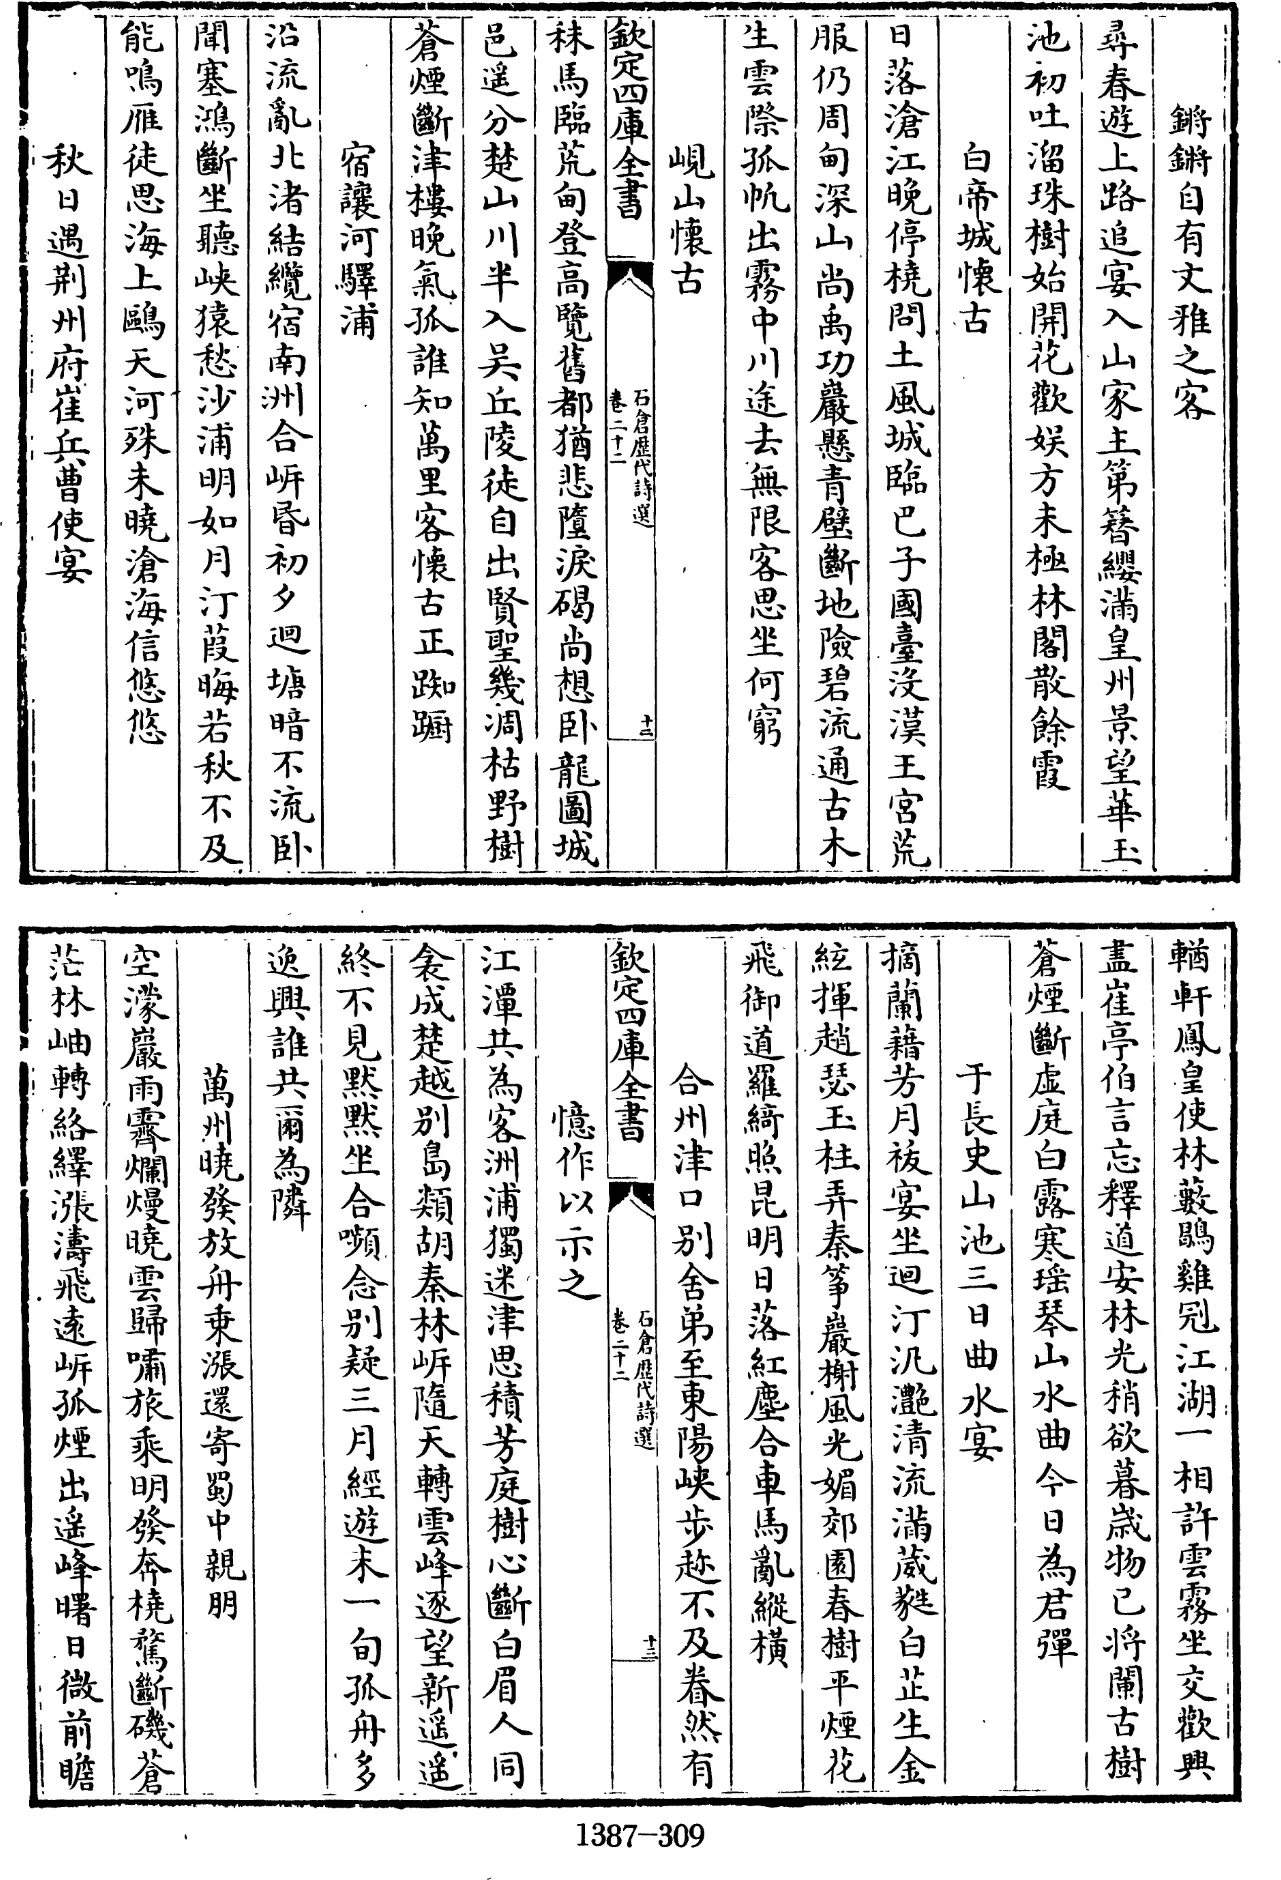 鏘鏘自有文雅之客
尋春遊上路追宴入山家主第簪纓滿皇州景望華玉
池初吐溜珠樹始開花歡娱方未極林閣散餘霞
白帝城懷古
日落滄江晚停橈問土風城臨巴子國臺沒漢王宮荒
服仍周甸深山尚禹功巖懸青壁斷地險碧流通古木
生雲際孤帆出霧中川途去無限客思坐何窮
峴山懷古
欽定四庫全書
石倉歷代詩選
卷二十二
十二
秣馬臨荒甸登高覽舊都猶悲墮淚碣尚想卧龍圖城
邑遥分楚山川半入吳丘陵徒自出賢聖幾凋枯野樹
蒼煙斷津樓晚氣孤誰知萬里客懷古正踟蹰
宿讓河驛浦
沿流亂北渚結纜宿南洲合岍昏初夕迴塘暗不流卧
聞塞鴻斷坐聽峡猿愁沙浦明如月汀葭晦若秋不及
能鳴雁徒思海上鷗天河殊未曉滄海信悠悠
秋日遇荆州府崔兵曹使宴
輶軒鳳皇使林藪鶡雞冠江湖一相許雲霧坐交歡興
盡崔亭伯言忘釋道安林光稍欲暮歲物已將闌古樹
蒼煙斷虚庭白露寒瑶琴山水曲今日為君彈
于長史山池三日曲水宴
摘蘭藉芳月祓宴坐迴汀汎灔清流滿葳蕤白芷生金
絃揮趙瑟玉柱弄秦箏巖榭風光媚郊園春樹平煙花
飛御道羅綺照昆明日落紅塵合車馬亂縱橫
合州津口别舍弟至東陽峡步趂不及眷然有
欽定四庫全書
石倉歷代詩選
卷二十二
十三
憶作以示之
江潭共為客洲浦獨迷津思積芳庭樹心斷白眉人同
衾成楚越别島類胡秦林岍隨天轉雲峰逐望新遥遥
終不見默默坐合嚬念别疑三月經遊未一旬孤舟多
逸興誰共爾為隣
萬州曉發放舟乗漲還寄蜀中親朋
空濛巖雨霽爛熳曉雲歸嘯旅乘明發奔橈驚斷磯蒼
茫林岫轉絡繹漲濤飛遠岍孤煙出遥峰曙日微前瞻
1387-309